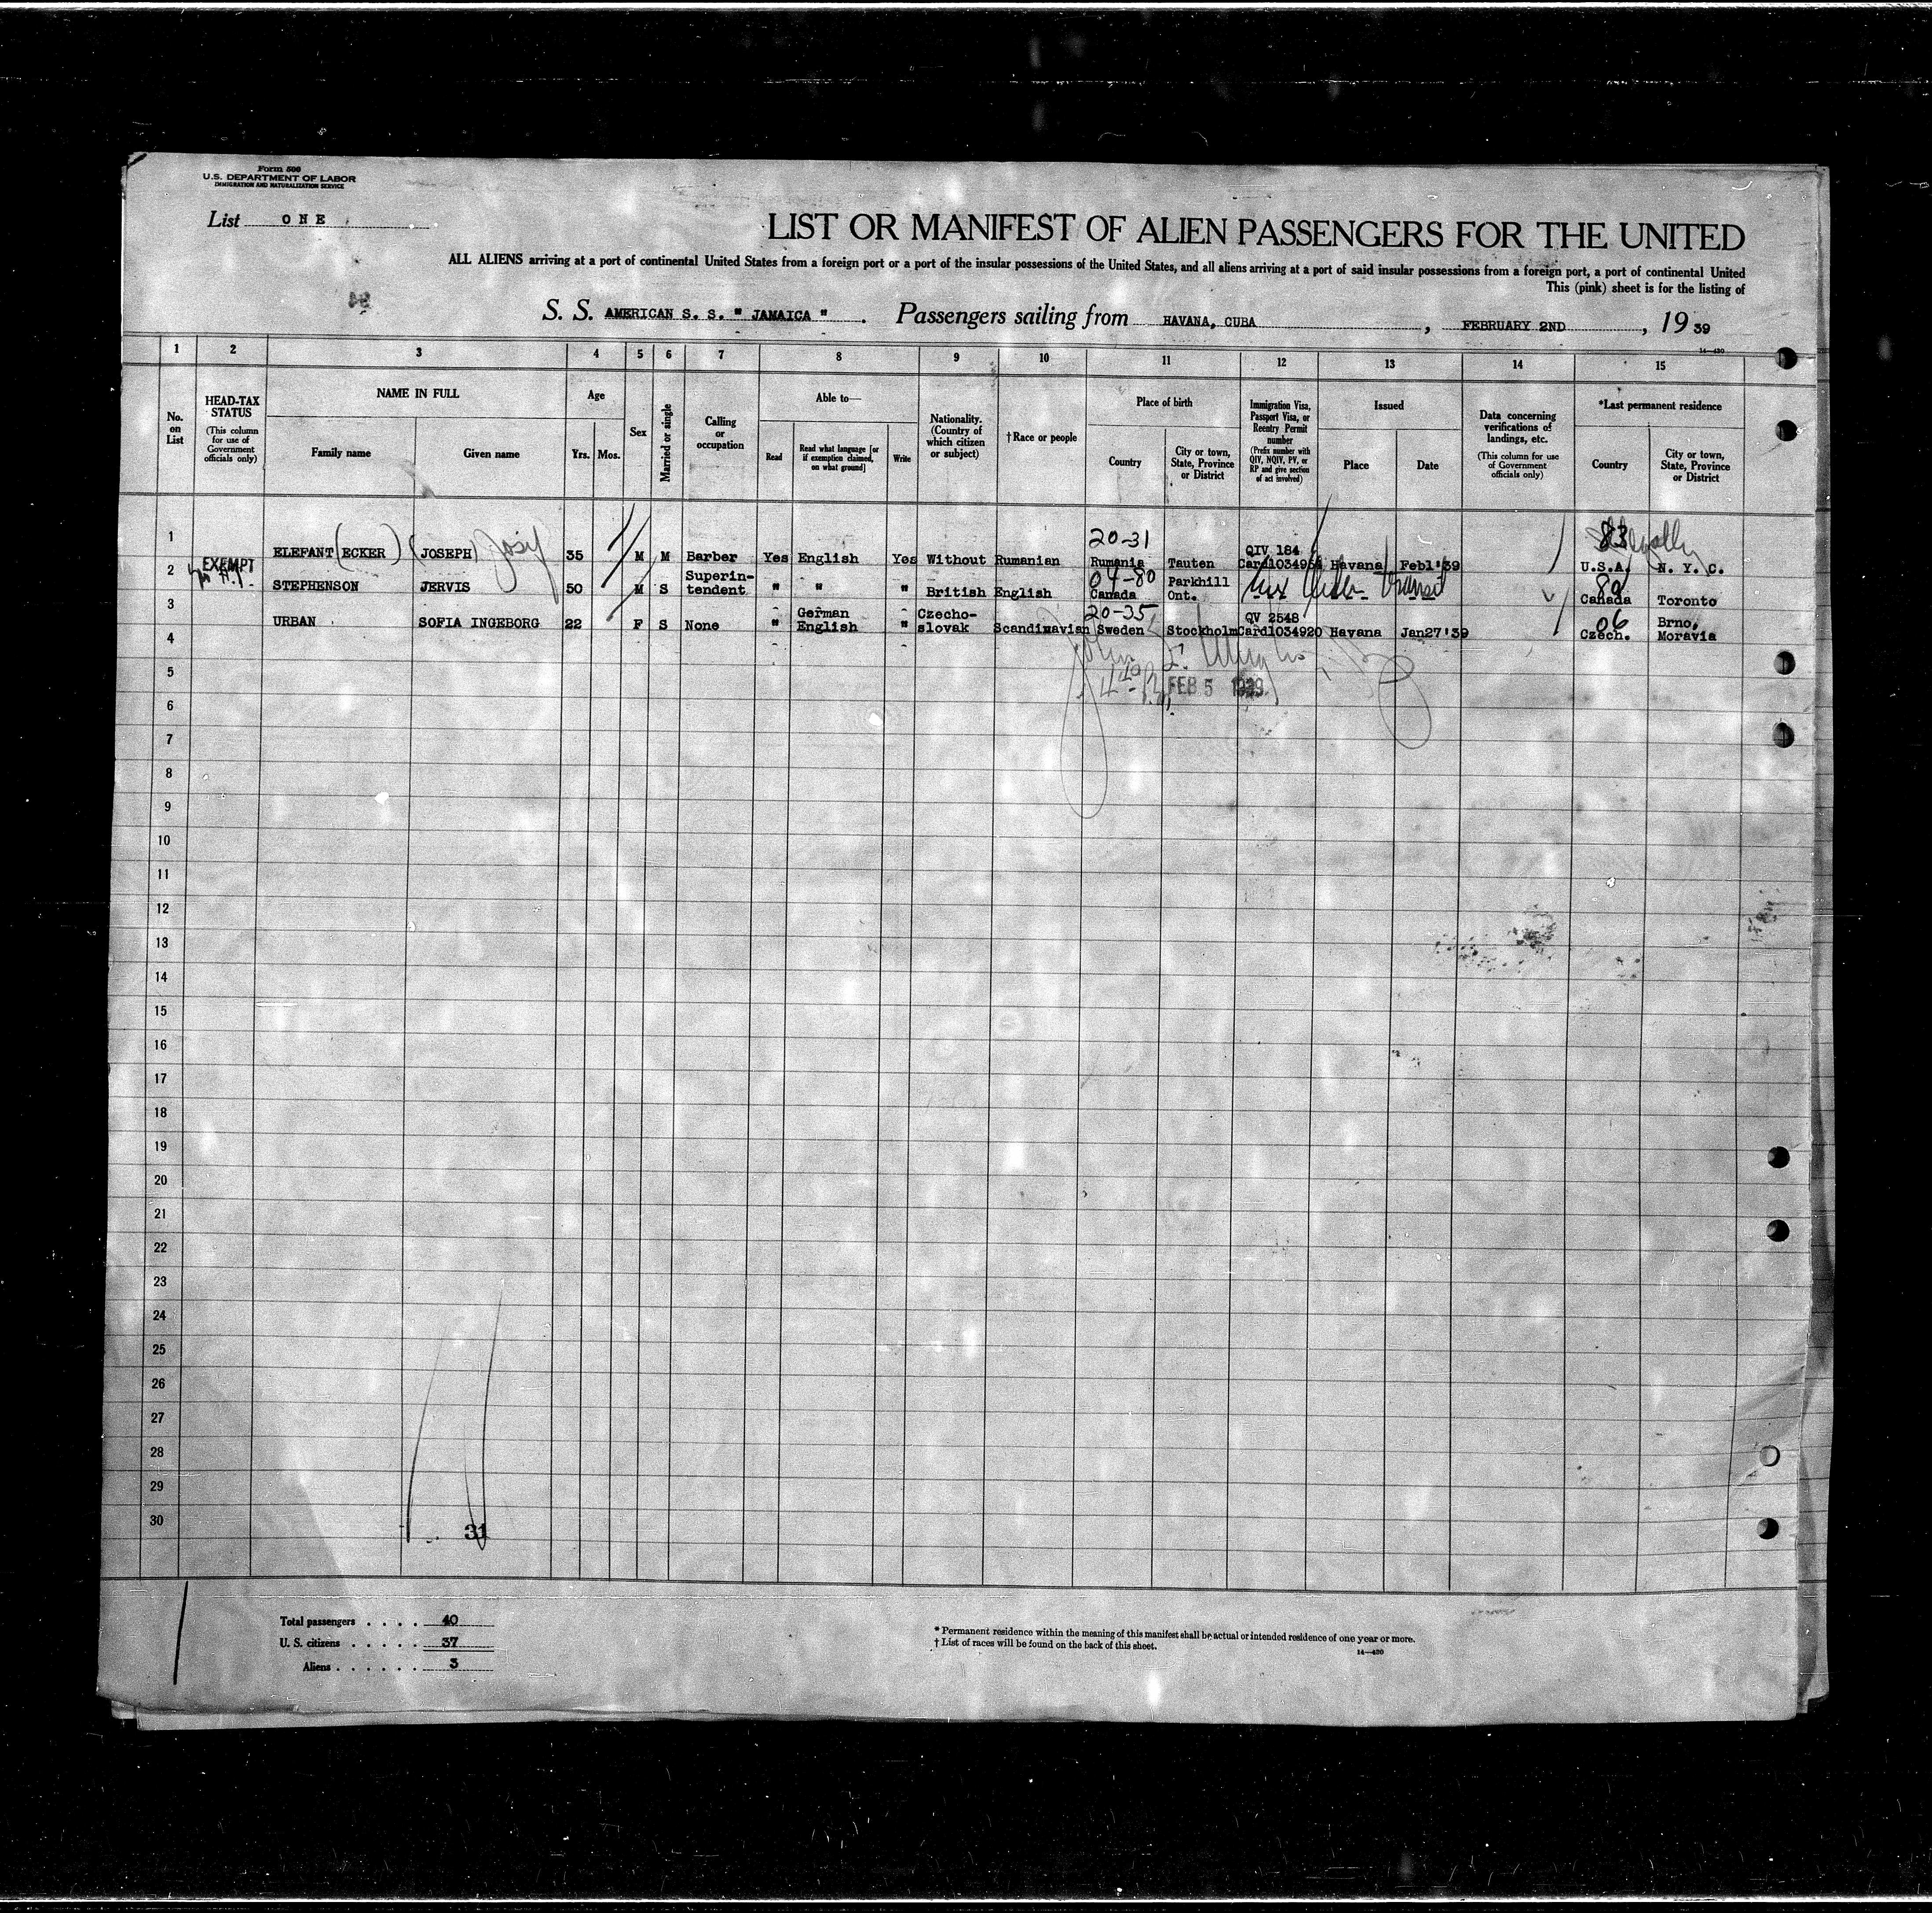 Form 500
U.S. DEPARTMENT OF LABOR
IMMIGRATION AND NATURALIZATION SERVICE
List ONE
LIST OR MANIFEST OF ALIEN PASSENGERS FOR THE UNITED
ALL ALIENS arriving at a port of continental United States from a foreign port or a port of the insular possessions of the United States, and all aliens arriving at a port of said insular possessions from a foreign port, a port of continental United
This (pink) sheet is for the listing of
S. S. AMERICAN S. S. " JAMAICA ". Passengers sailing from HAVANA, CUBA, FEBRUARY 2ND, 1939
14—430
1 2 3 4 5 6 7 8 9 10 11 12 13 14 15
No. on List
HEAD-TAX STATUS
(This column for use of Government officials only)
NAME IN FULL
Family name
Given name
Age
Yrs.
Mos.
Sex
Married or single
Calling or occupation
Able to—
Read
Read what language [or if exemption claimed, on what ground]
Write
Nationality. (Country of which citizen or subject)
†Race or people
Place of birth
Country
City or town, State, Province or District
Immigration Visa, Passport Visa, or Reentry Permit number
(Prefix number with QIV, NQIV, PV, or RP and give section of act involved)
Issued
Place
Date
Data concerning verifications of landings, etc.
(This column for use of Government officials only)
*Last permanent residence
Country
City or town, State, Province or District
1 ELEFANT (ECKER) (JOSEPH) Josif 35 M M Barber Yes English Yes Without Rumanian 20-31 Rumania Tauten QIV 184 Havana Feb1'39 83 U.S.A. N. Y. C.
2 EXEMPT STEPHENSON JERVIS 50 M S Superin-tendent " " " British English 04-80 Canada Parkhill Ont. transit 89 Canada Toronto
3 URBAN SOFIA INGEBORG 22 F S None " German English " Czecho-slovak Scandinavian 20-35 Sweden Stockholm QV 2548 Card1034920 Havana Jan27'39 06 Czech. Brno, Moravia
4
5 FEB 5 1939
6
7
8
9
10
11
12
13
14
15
16
17
18
19
20
21
22
23
24
25
26
27
28
29
30
31
Total passengers . . . . 40
U. S. citizens . . . . . 37
Aliens . . . . . . 3
* Permanent residence within the meaning of this manifest shall be actual or intended residence of one year or more.
† List of races will be found on the back of this sheet.
14—430